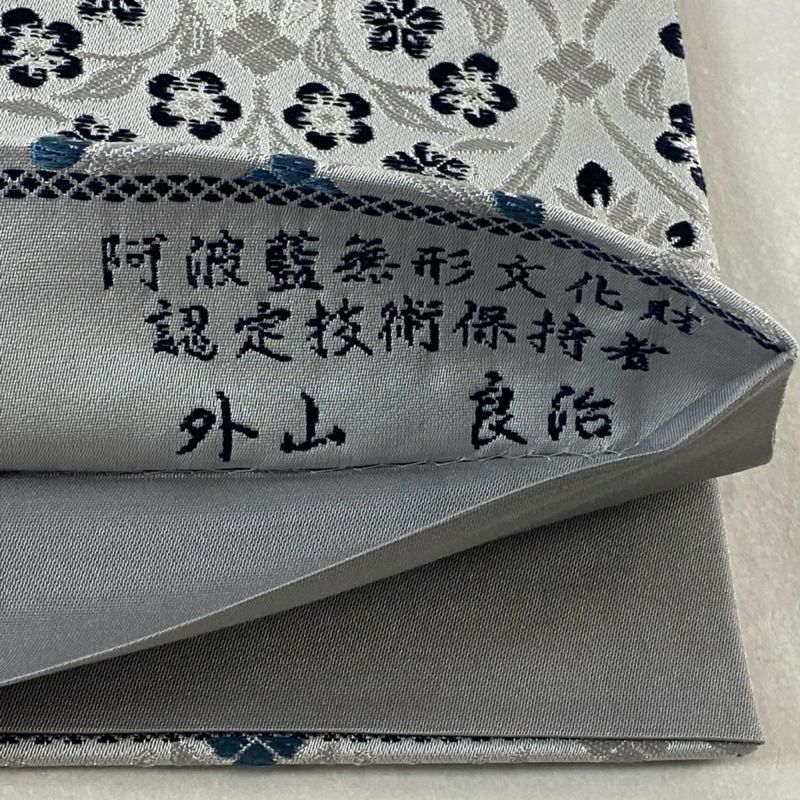 阿波藍無形文化財
認定技術保持者
外山 良治